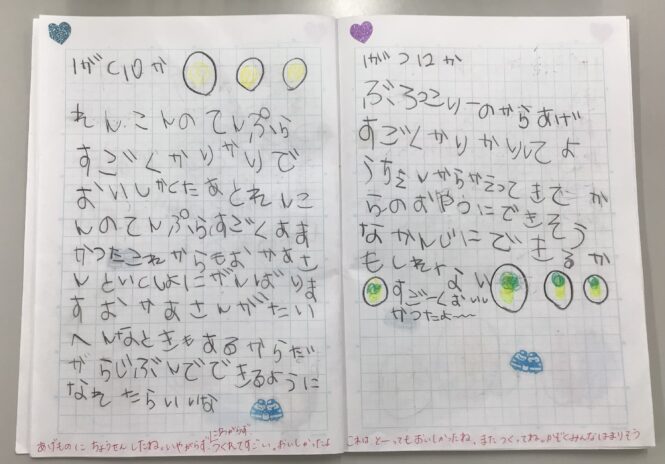 1がつ10か
れんこんのてんぷら
すごくかりかりで
おいしかくたあとれんこ
んのてんぷらすごくあま
かつたこれからもおかあさ
んといくしよにがんばりま
すおかあさんがたい
へんなときもあるからだ
からじぶんでできるように
なれたらいいな
あげものにちょうせんしたね。いやがらず
こわがらず
つくれてすごい。おいしかったよ
1がつ12か
ぶろっこりーのからあげ
すごくかりかりしてよ
うちえんからかえってきてか
らのおやつにできそう
なかんじにできるか
もしれない
すごーくおいし
かつたよ〜〜
これはとーってもおいしかったね、またつくってね。かぞくみんなはまりそう